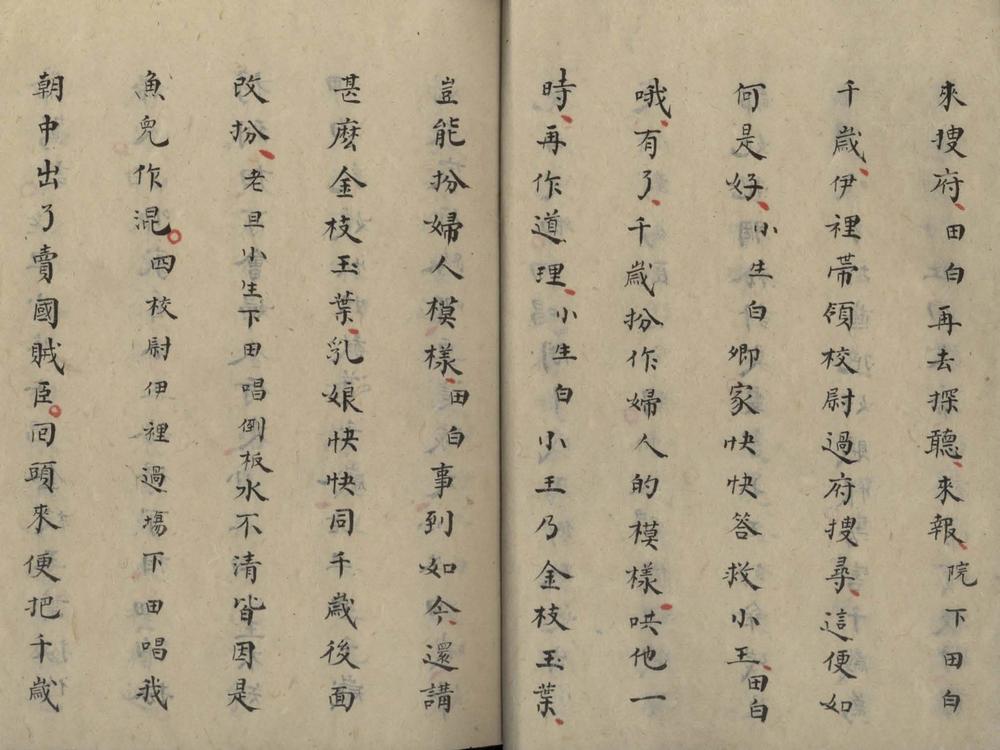 來搜府、田白再去探聽、來報、院下田白
千歲、伊裡帶領校尉過府搜尋、這便如
何是好、小生白卿家快快答救小王、田白
哦、有了、千歲扮作婦人的模樣、哄他一
時、再作道理、小生白小王乃金枝玉葉、
豈能扮婦人模樣、田白事到如今、還講
甚麽金枝玉葉、乳娘快快同千歲後面
改扮、老旦小生下田唱倒板水不清皆因是
魚兒作混。四校尉伊裡過場下田唱我
朝中出了賣國賊臣。回頭來便把千歲